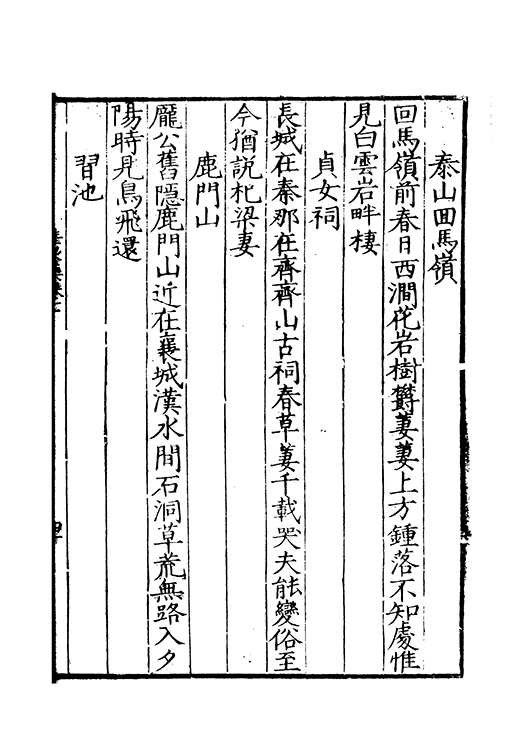 泰山回馬嶺
回馬嶺前春日西澗花岩樹欝萋萋上方鍾落不知處惟
見白雲岩畔棲
貞女祠
長城在秦那在齊齊山古祠春草萋千載哭夫能變俗至
今猶說杞梁妻
鹿門山
龐公舊隱鹿門山近在襄城漢水間石洞草荒無路入夕
陽時見鳥飛還
習池